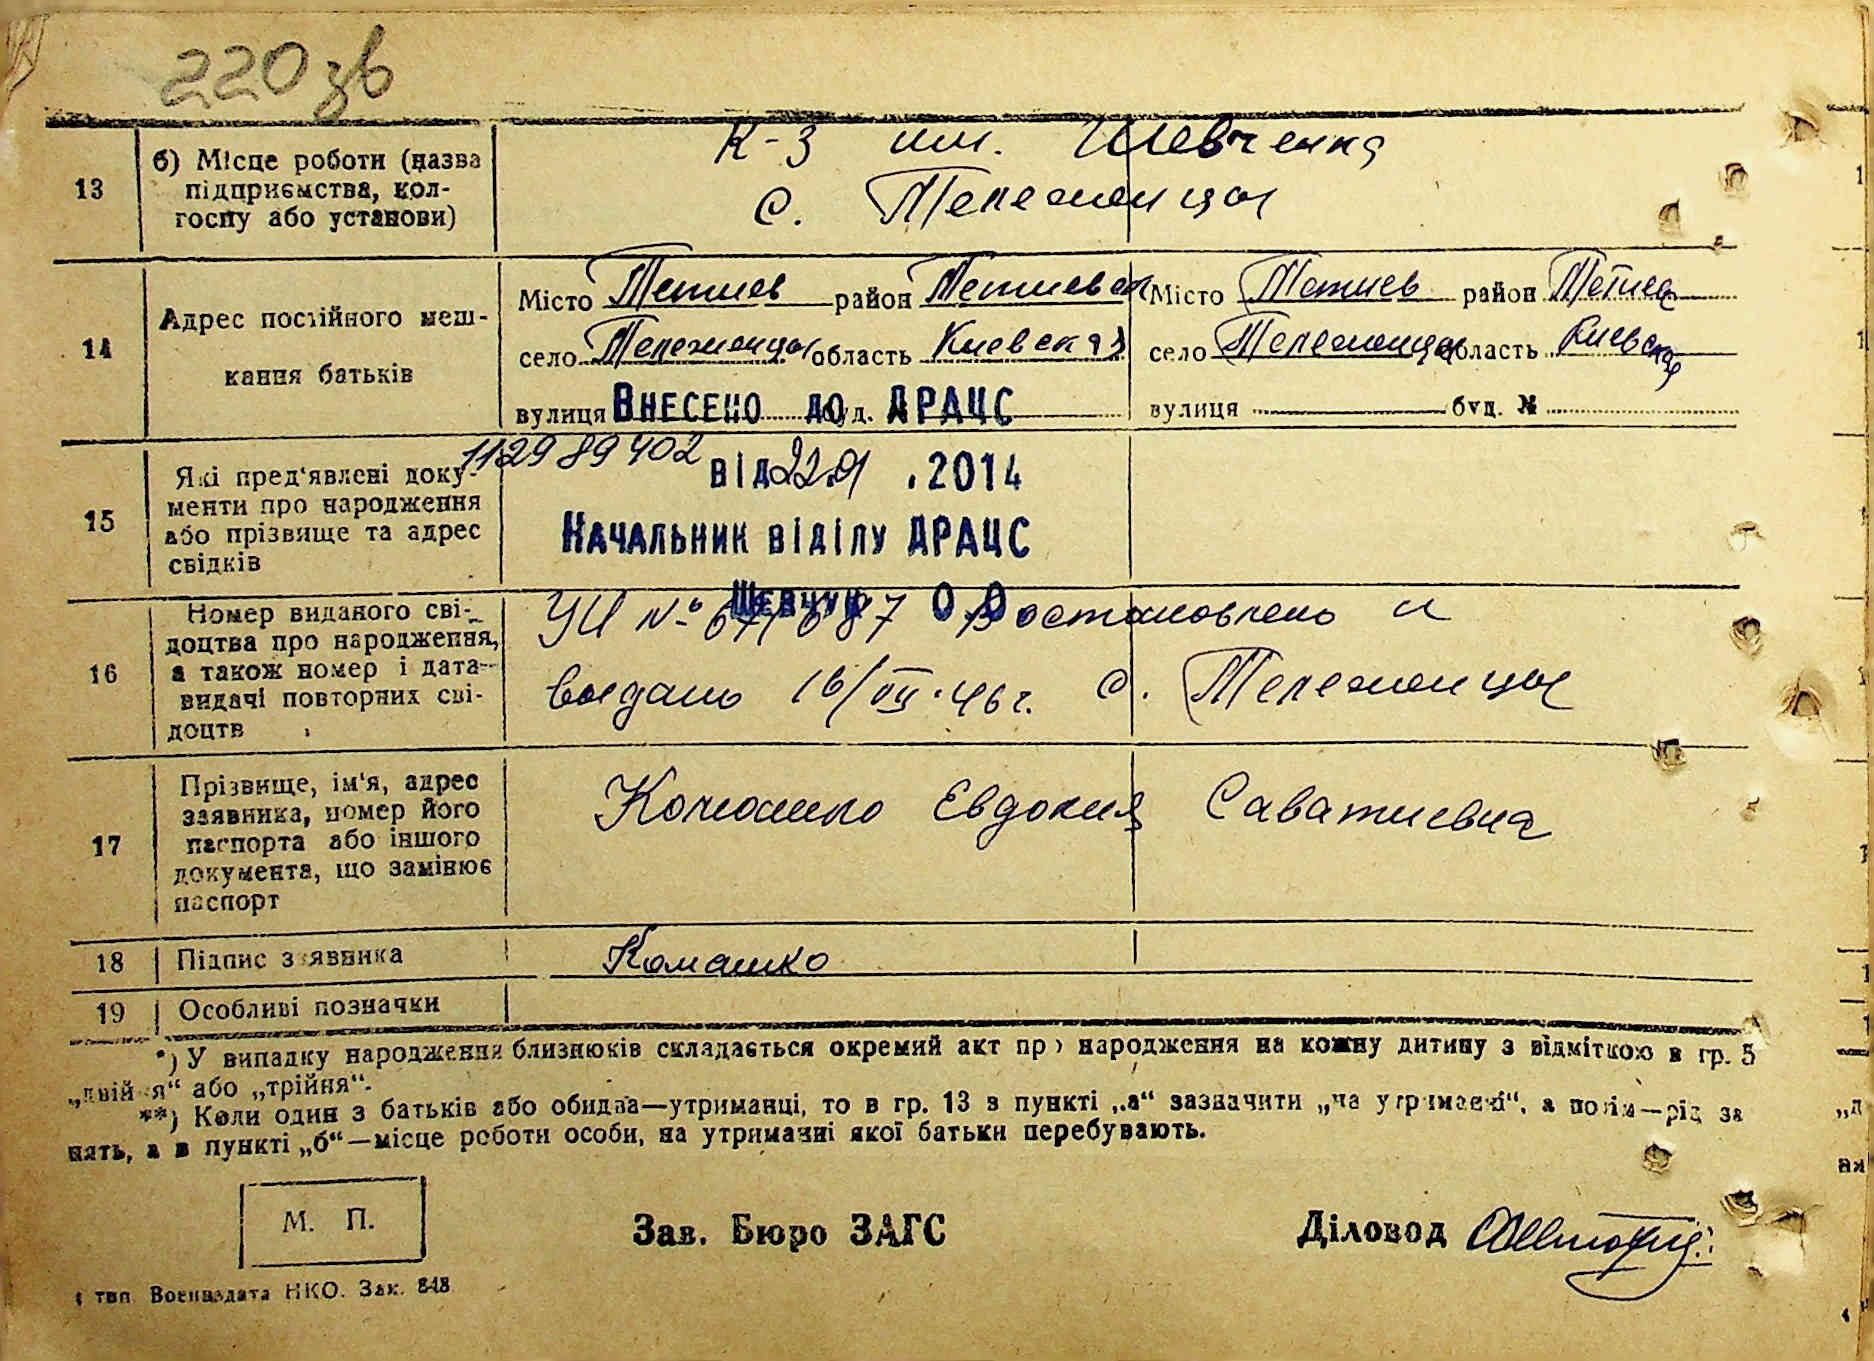 220 зв
13 б) Місце роботи (назва підприємства, колгоспу або установи)
К-з им. Шевченка
с. Тележенцы
14 Адрес постійного мешкання батьків
Місто Тетиев район Тетиевск
село Тележенцы область Киевская
вулиця буд.
Місто Тетиев район Тетиев
село Тележенцы область Киевская
вулиця буд. №
Внесено до ДРАЦС
1129 89 402 від 22.01.2014
Начальник відділу ДРАЦС
Шевчук О О
15 Які пред'явлені документи про народження або прізвище та адрес свідків
16 Номер виданого свідоцтва про народження, а також номер і дата видачі повторних свідоцтв
УЦ № 687 Востановлено и
выдано 16/VII-46 г. с. Тележенцы
17 Прізвище, ім'я, адрес заявника, номер його паспорта або іншого документа, що замінює паспорт
Комашко Евдокия Саватиевна
18 Підпис заявника Комашко
19 Особливі позначки
*) У випадку народження близнюків складається окремий акт про народження на кожну дитину з відміткою в гр. 5
„двійня“ або „трійня“.
**) Коли один з батьків або обидва—утриманці, то в гр. 13 в пункті „а“ зазначити „на утриманні“, а потім—рід за
нять, а в пункті „б“—місце роботи особи, на утриманні якої батьки перебувають.
М. П.
Зав. Бюро ЗАГС
Діловод
тип. Воениздата НКО. Зак. 848